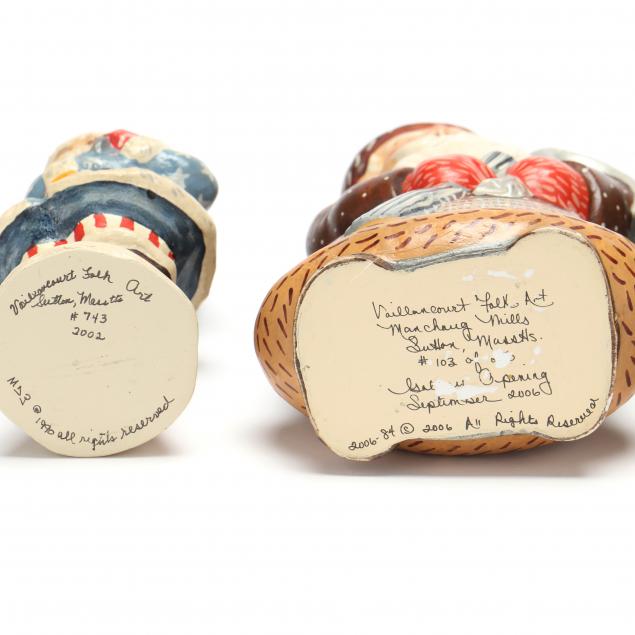 Vaillancourt Folk Art
Sutton, Massts
# 743
2002
© 1990 all rights reserved
Vaillancourt Folk Art
Manchaug Mills
Sutton, Massts.
# 103 of
Opening
September 2006
2006-84 © 2006 All Rights Reserved